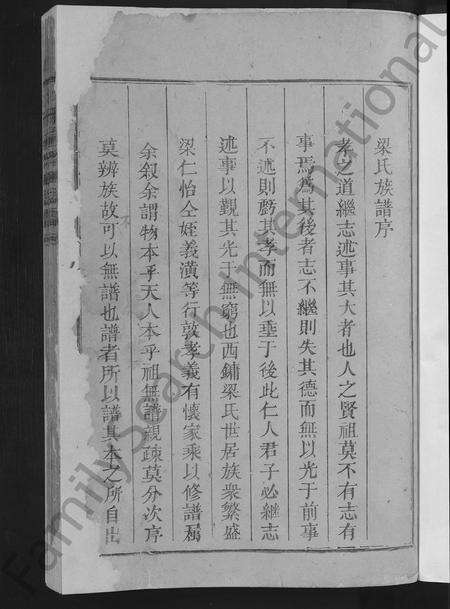 梁氏族譜序
孝之道繼志述事其大者也人之賢祖莫不有志有
事焉爲其後者志不繼則失其德而無以光于前事
不述則虧其孝而無以垂于後此仁人君子必繼志
述事以覲其光于無窮也西鏞梁氏世居族衆繁盛
梁仁怡仝姪義潢等行敦孝義有懷家乘以修譜屬
余叙余謂物本乎天人本乎祖無譜親疎莫分次序
莫辨族故可以無譜也譜者所以譜其本之所自出
FamilySearch International